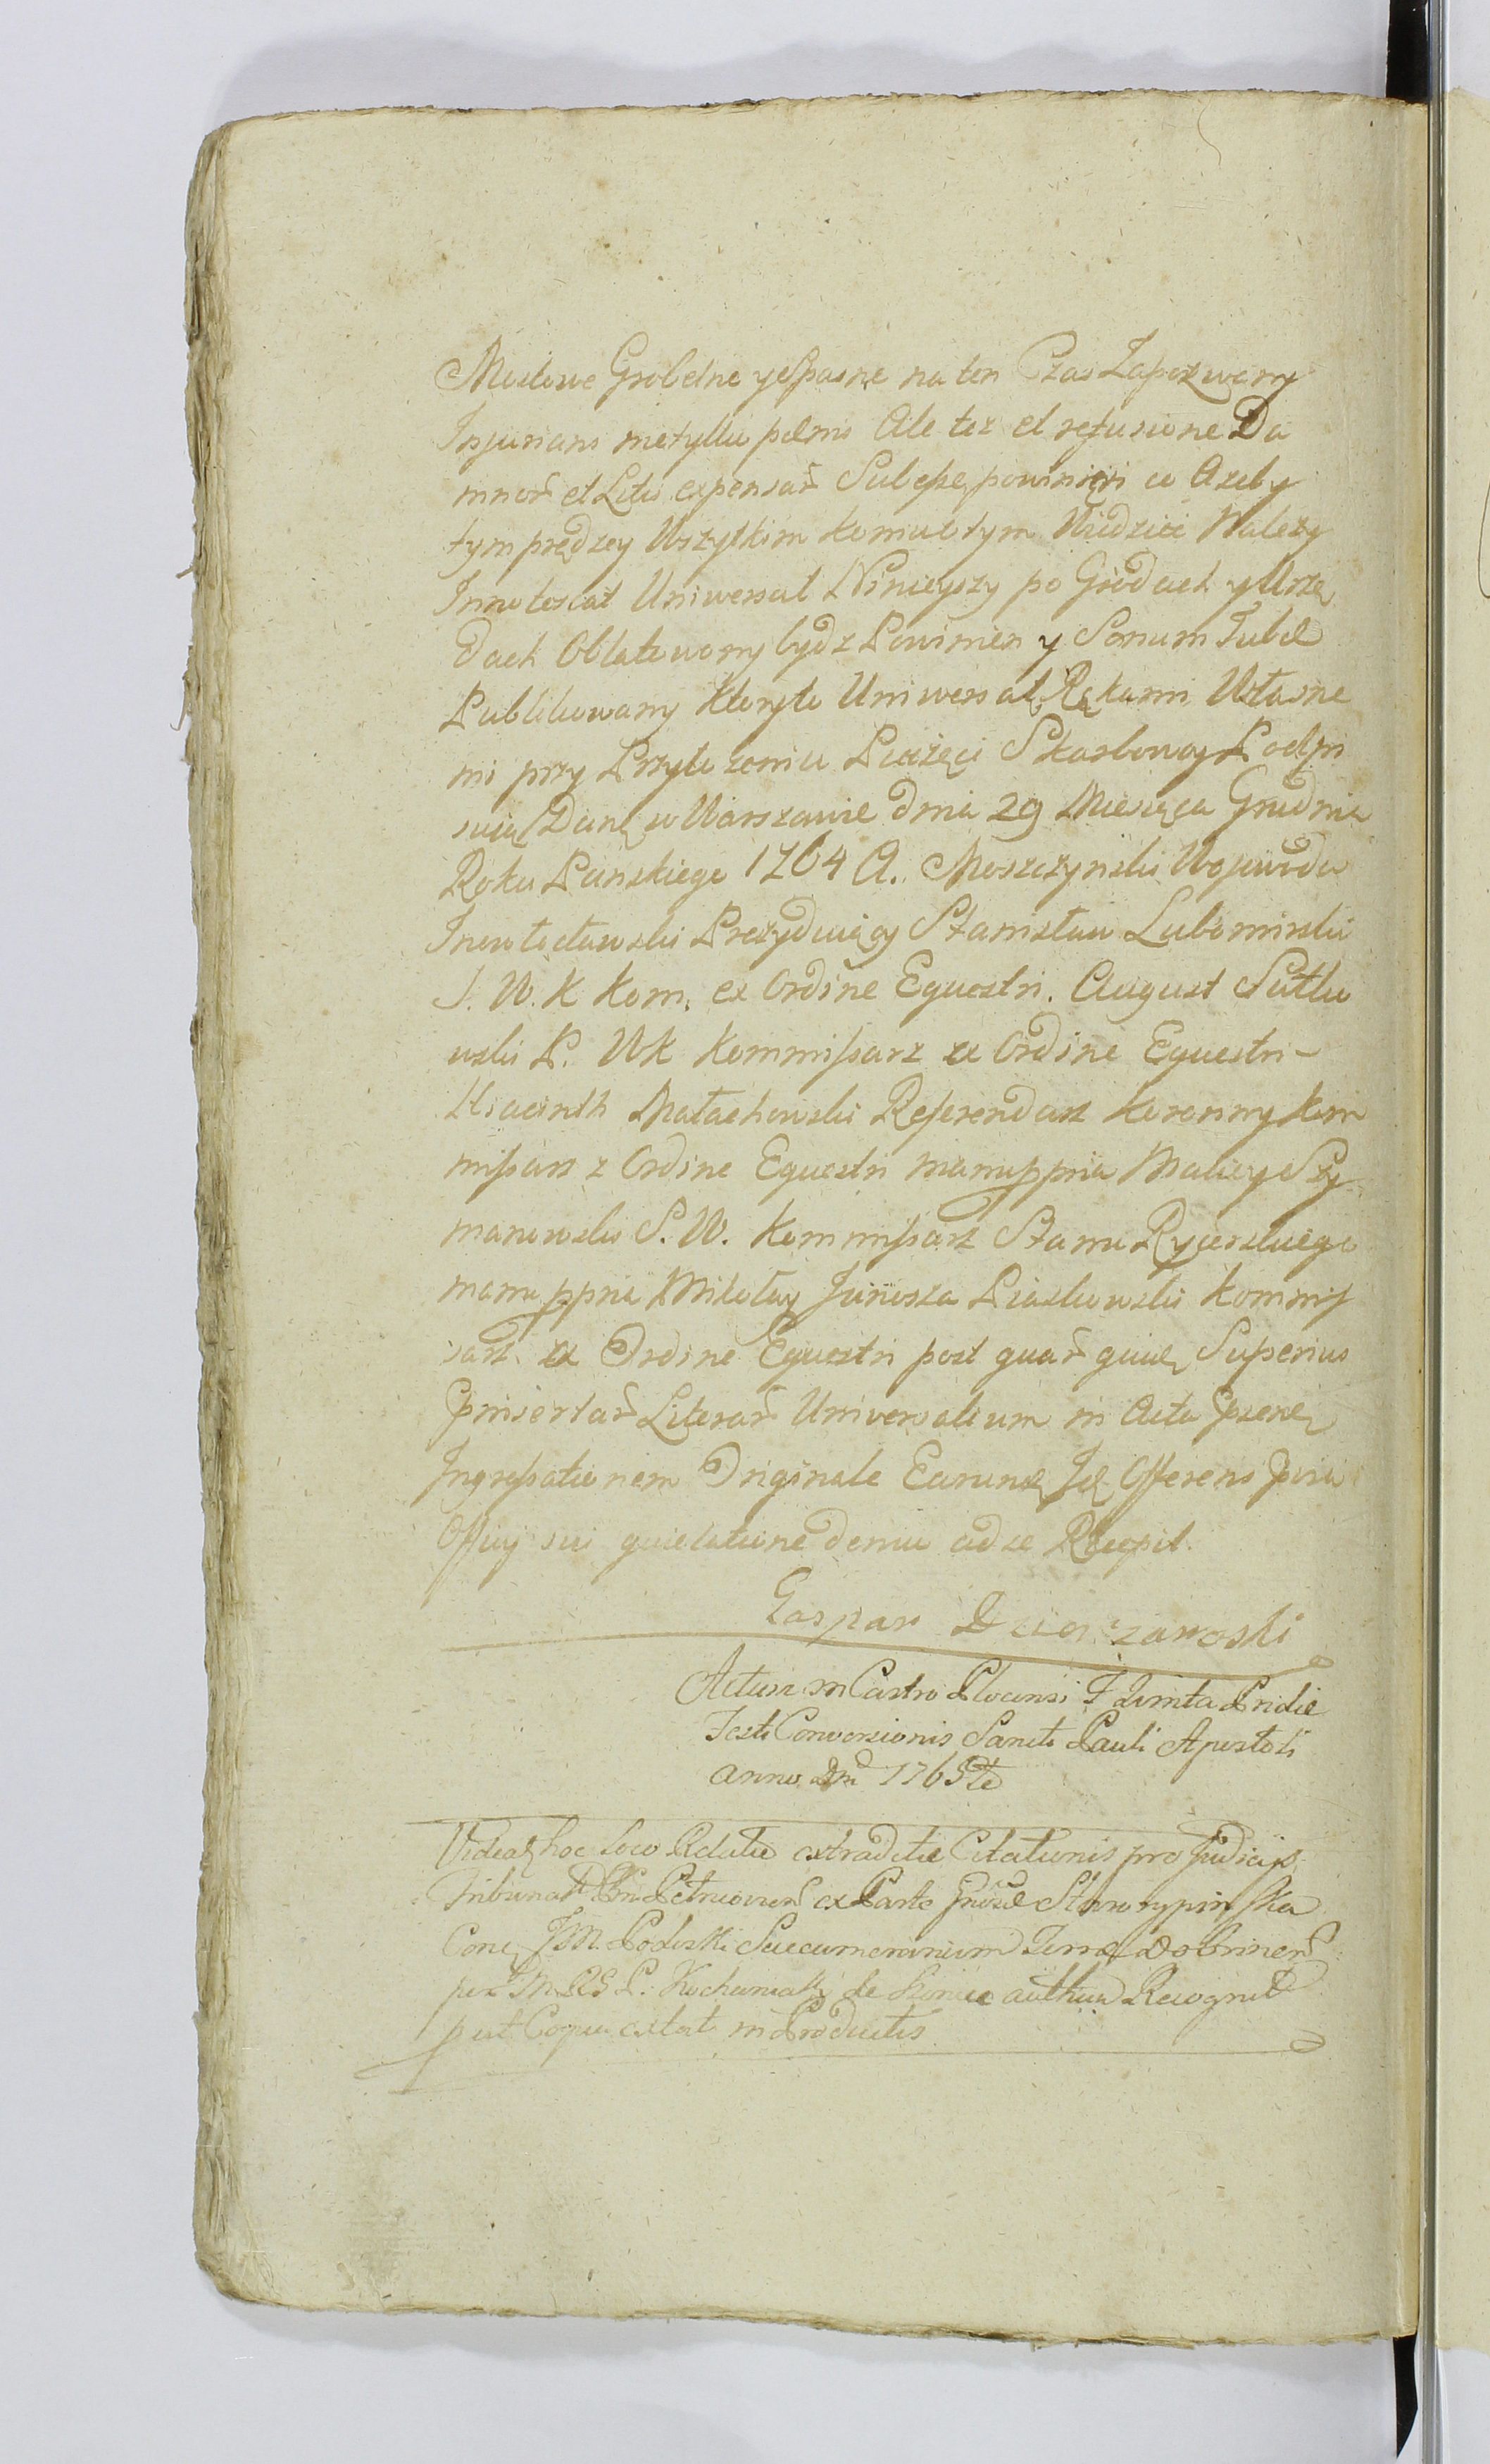 Mostowe Grobelne y Spasne na ten Czas Zapozwany
Injurians nietylko pelnis Ale tez et refusione Da
mnor̃ et Litis expensar̃ Subesse powinien a Azeby
tym prędzey Wszytkim komu o tym Wiedzieć Należy
Innotescat Uniwersał Ninieyszy po Grodach y Urzę
dach Oblatowany bydz Powinien y Sonum Tubæ
Publikowany ktoryto Uniwersał Rękami Własne
mi przy Przytozeniu Pieczęci Skarbowey Podpi
suią Dane w Warszawie dnia 29 Miesiąca Grudnia
Roku Panskiego 1764 A. Moszczynski Wojewoda
Inowłocławski Prezyduiący Stanisław Lubomirski
S. W. K Kom. ex Ordine Equestri. August Sułko
wski P. WK Kommissarz ex Ordine Equestri –
Hiacinth Małachowski Referendarz Koronny Kom
missarz z Ordine Equestri manu ppria Maciey Szy
manowski S. W. Kommissarz Stanu Rycerskiego
manu ppria Mikołay Junosza Piaskowski Kommis
sarz ex Ordine Equestri post quar̃ quidę Superius
Insertar̃ Literar̃ Universalium in Acta Psenę
Ingrossationem Originale Earundę Idę Offerens
Officij sui quietatione denuo ad se Recepit.
Gaspar
Actum in Castro Plocensi F Quinta Pridie
Festi Conversionis Sancti Pauli Apostoli
Anno Dni 1765to
Videaţ hoc loco Relatio extraditæ Citationis pro Judicijs
Tribunal Petricovień ex Parte Starorypinska
Conţ Podoski Succamerarium Terræ Dobrinen
per Recognit
put Copia extat in Productis